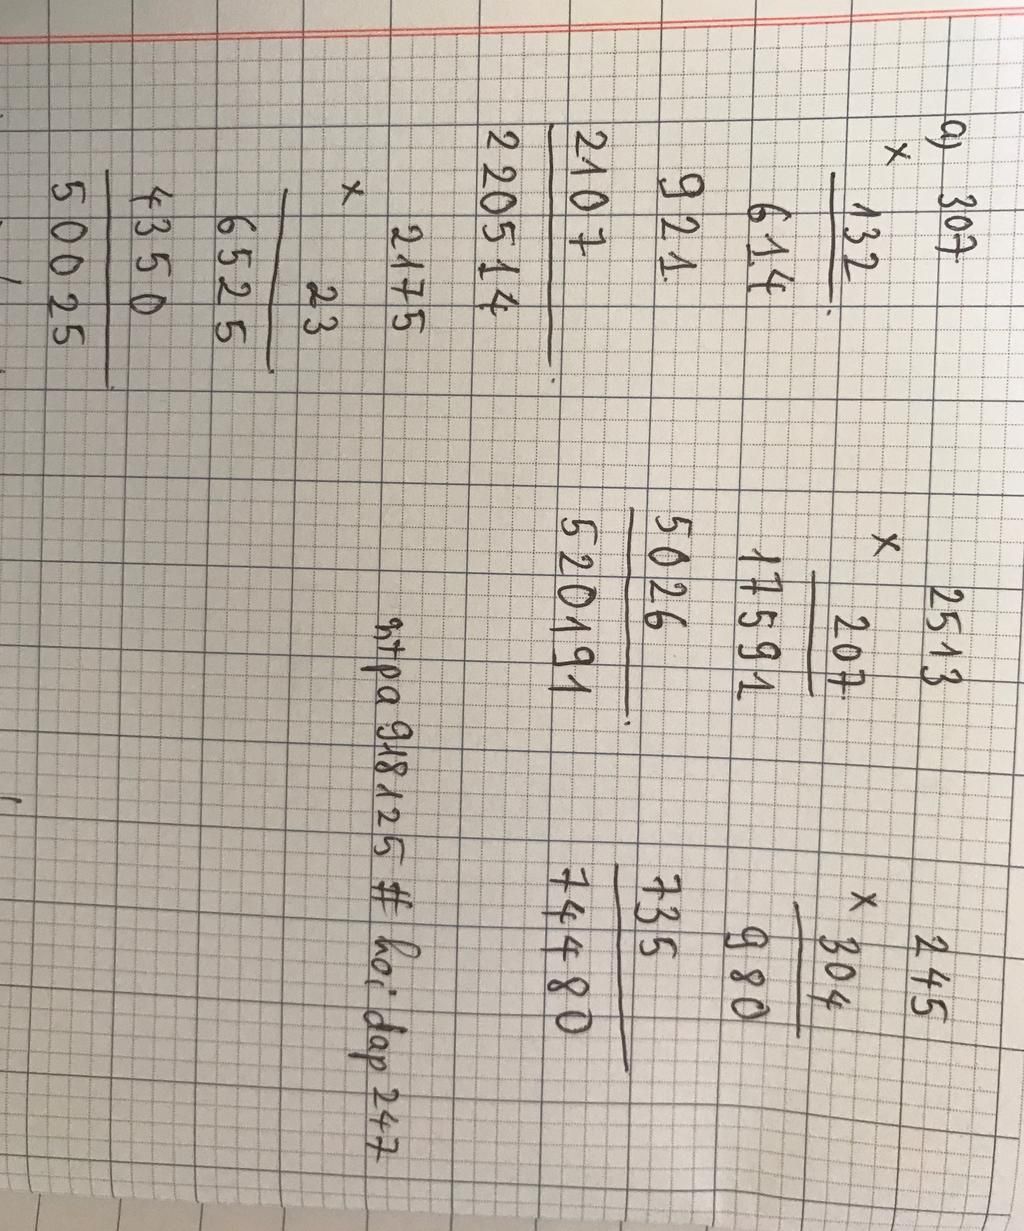 a) 307
× 132
614
921
2107
220514
2513
× 207
17591
5026
520191
245
× 304
980
735
74480
2175
× 23
6525
4350
50025
ntpa918125 # hoidap247